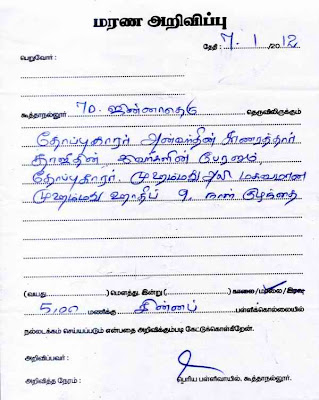 மரண அறிவிப்பு
தேதி : 7. 1 /2012
பெறுவோர் :
கூத்தாநல்லூர் 70. ஜின்னாதெரு தெருவிலிருக்கும்
தோப்புகாரர் அன்வர்தின்
தாவீதின் அவர்களின் பேரனும்,
தோப்புகாரர். முஹம்மது அலி மகனுமான
முஹம்மது ஹாதீப் 9. நாள் குழந்தை
(வயது ) மௌத்து. இன்று ( ) காலை / மாலை / இரவு
5.00 மணிக்கு சின்னப் பள்ளிக்கொல்லையில்
நல்லடக்கம் செய்யப்படும் என்பதை அறிவிக்கும்படி கேட்டுக்கொள்கிறேன்.
அறிவிப்பவர் :
அறிவித்த நேரம் : பெரிய பள்ளிவாயில், கூத்தாநல்லூர்.